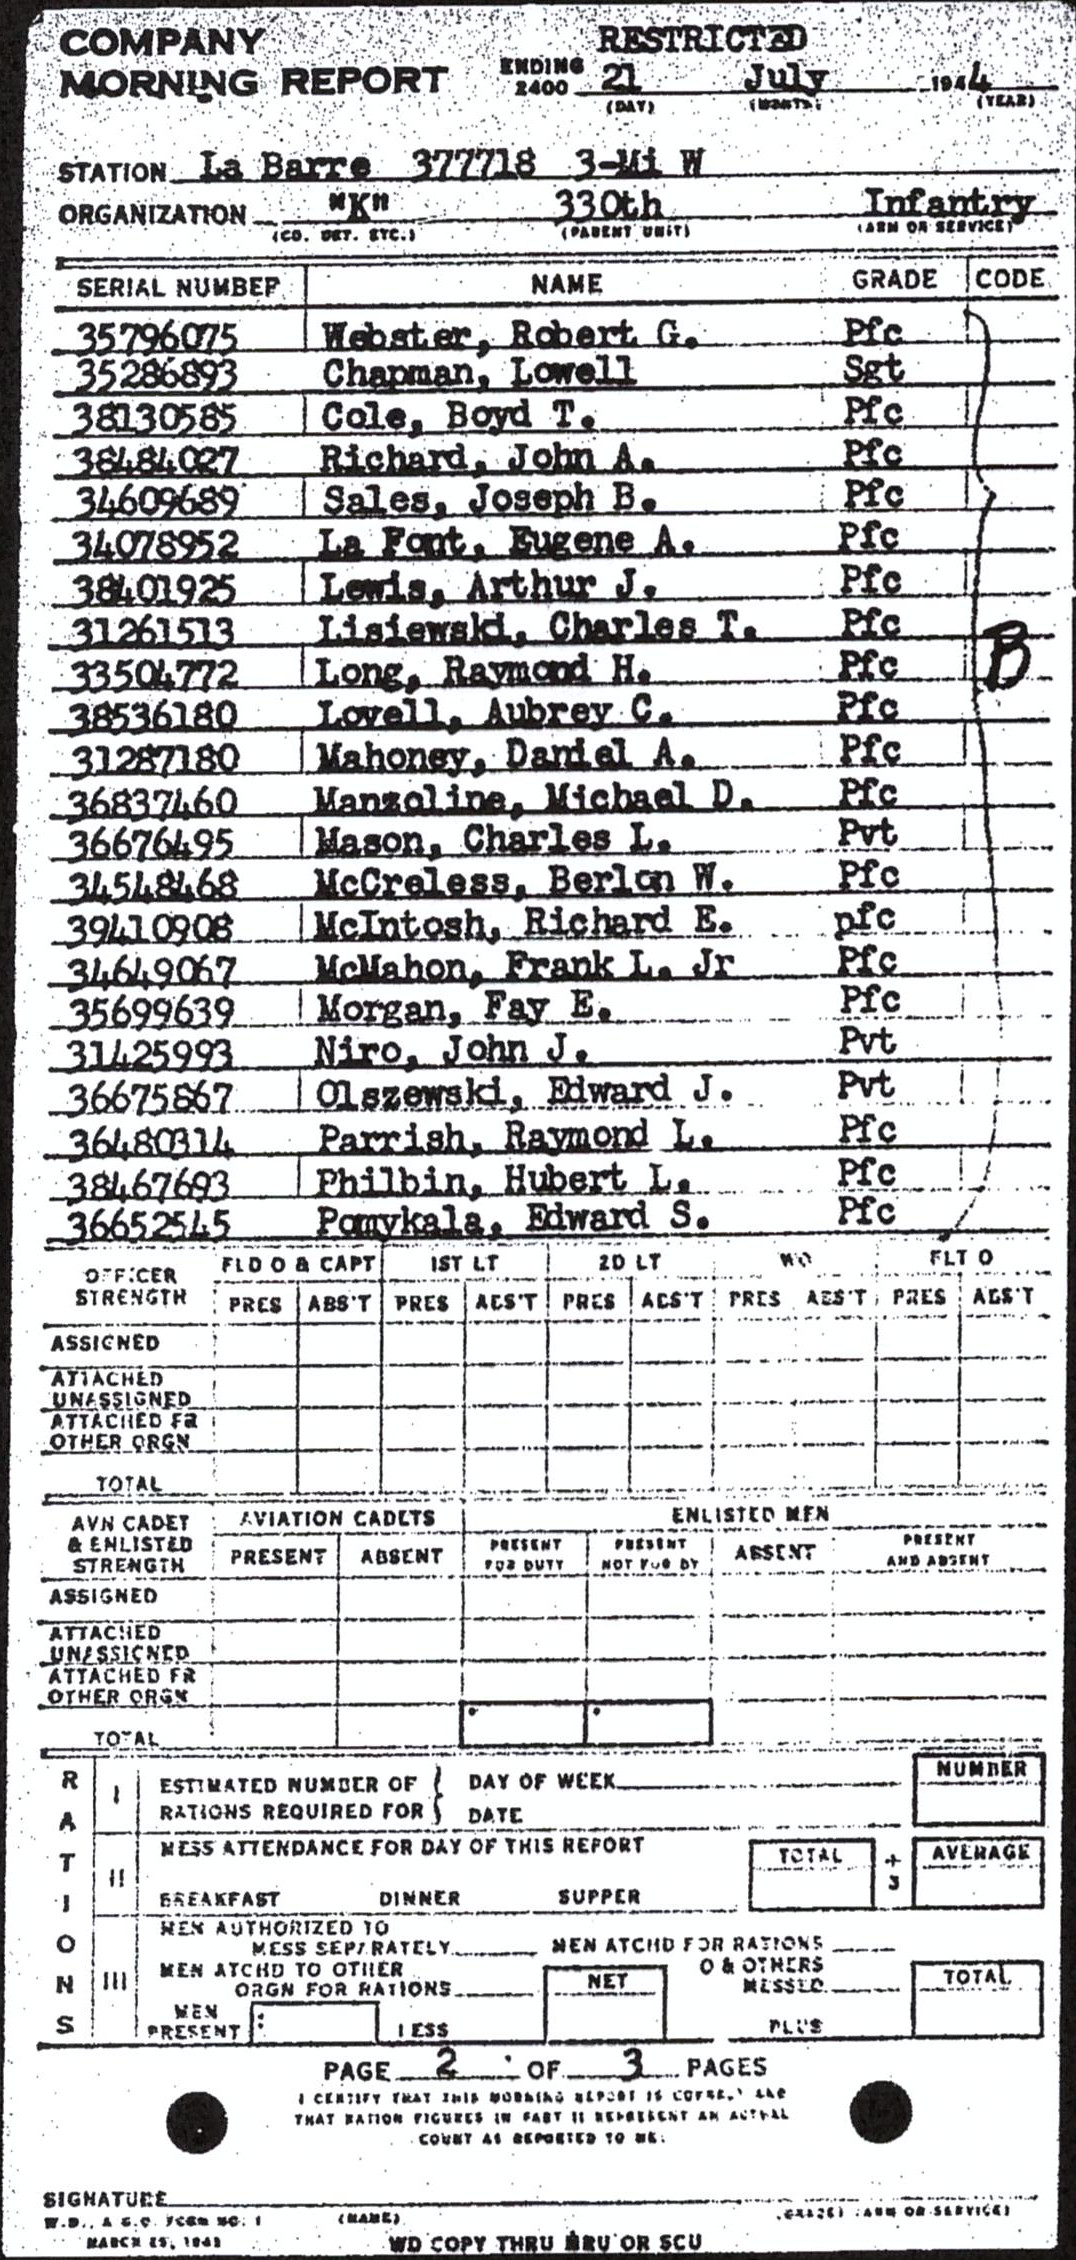 COMPANY RESTRICTED
MORNING REPORT ENDING 2400 21 July 1944
(DAY) (MONTH) (YEAR)
STATION La Barre 377718 3-Mi W
ORGANIZATION "K" 330th Infantry
(CO. DET. ETC.) (PARENT UNIT) (ARM OR SERVICE)
SERIAL NUMBER NAME GRADE CODE
35796075 Webster, Robert G. Pfc
35286893 Chapman, Lowell Sgt
38130585 Cole, Boyd T. Pfc
38484027 Richard, John A. Pfc
34609689 Sales, Joseph B. Pfc
34078952 La Font, Eugene A. Pfc
38401925 Lewis, Arthur J. Pfc
31261513 Lisiewski, Charles T. Pfc
33504772 Long, Raymond H. Pfc B
38536180 Lovell, Aubrey C. Pfc
31287180 Mahoney, Daniel A. Pfc
36837460 Manzoline, Michael D. Pfc
36676495 Mason, Charles L. Pvt
34548468 McCreless, Berlon W. Pfc
39410908 McIntosh, Richard E. pfc
34649067 McMahon, Frank L. Jr Pfc
35699639 Morgan, Fay E. Pfc
31425993 Niro, John J. Pvt
36675867 Olszewski, Edward J. Pvt
36480314 Parrish, Raymond L. Pfc
38467693 Philbin, Hubert L. Pfc
36652545 Pomykala, Edward S. Pfc
OFFICER STRENGTH FLD O & CAPT 1ST LT 2D LT WO FLT O
PRES ABS'T PRES ABS'T PRES ABS'T PRES ABS'T PRES ABS'T
ASSIGNED
ATTACHED
UNASSIGNED
ATTACHED FR
OTHER ORGN
TOTAL
AVN CADET & ENLISTED STRENGTH AVIATION CADETS ENLISTED MEN
PRESENT ABSENT PRESENT FOR DUTY PRESENT NOT FOR DY ABSENT PRESENT AND ABSENT
ASSIGNED
ATTACHED
UNASSIGNED
ATTACHED FR
OTHER ORGN
TOTAL
RATIONS
I ESTIMATED NUMBER OF DAY OF WEEK NUMBER
RATIONS REQUIRED FOR DATE
II MESS ATTENDANCE FOR DAY OF THIS REPORT TOTAL ÷ 3 AVERAGE
BREAKFAST DINNER SUPPER
III MEN AUTHORIZED TO
MESS SEPARATELY MEN ATCHD FOR RATIONS
MEN ATCHD TO OTHER O & OTHERS
ORGN FOR RATIONS NET MESSED TOTAL
MEN PRESENT LESS PLUS
PAGE 2 OF 3 PAGES
I CERTIFY THAT THIS MORNING REPORT IS CORRECT AND
THAT RATION FIGURES IN PART II REPRESENT AN ACTUAL
COUNT AS REPORTED TO ME.
SIGNATURE
W.D., A.G.O. FORM NO. 1 (NAME) (GRADE) (ARM OR SERVICE)
MARCH 25, 1943 WD COPY THRU MRU OR SCU